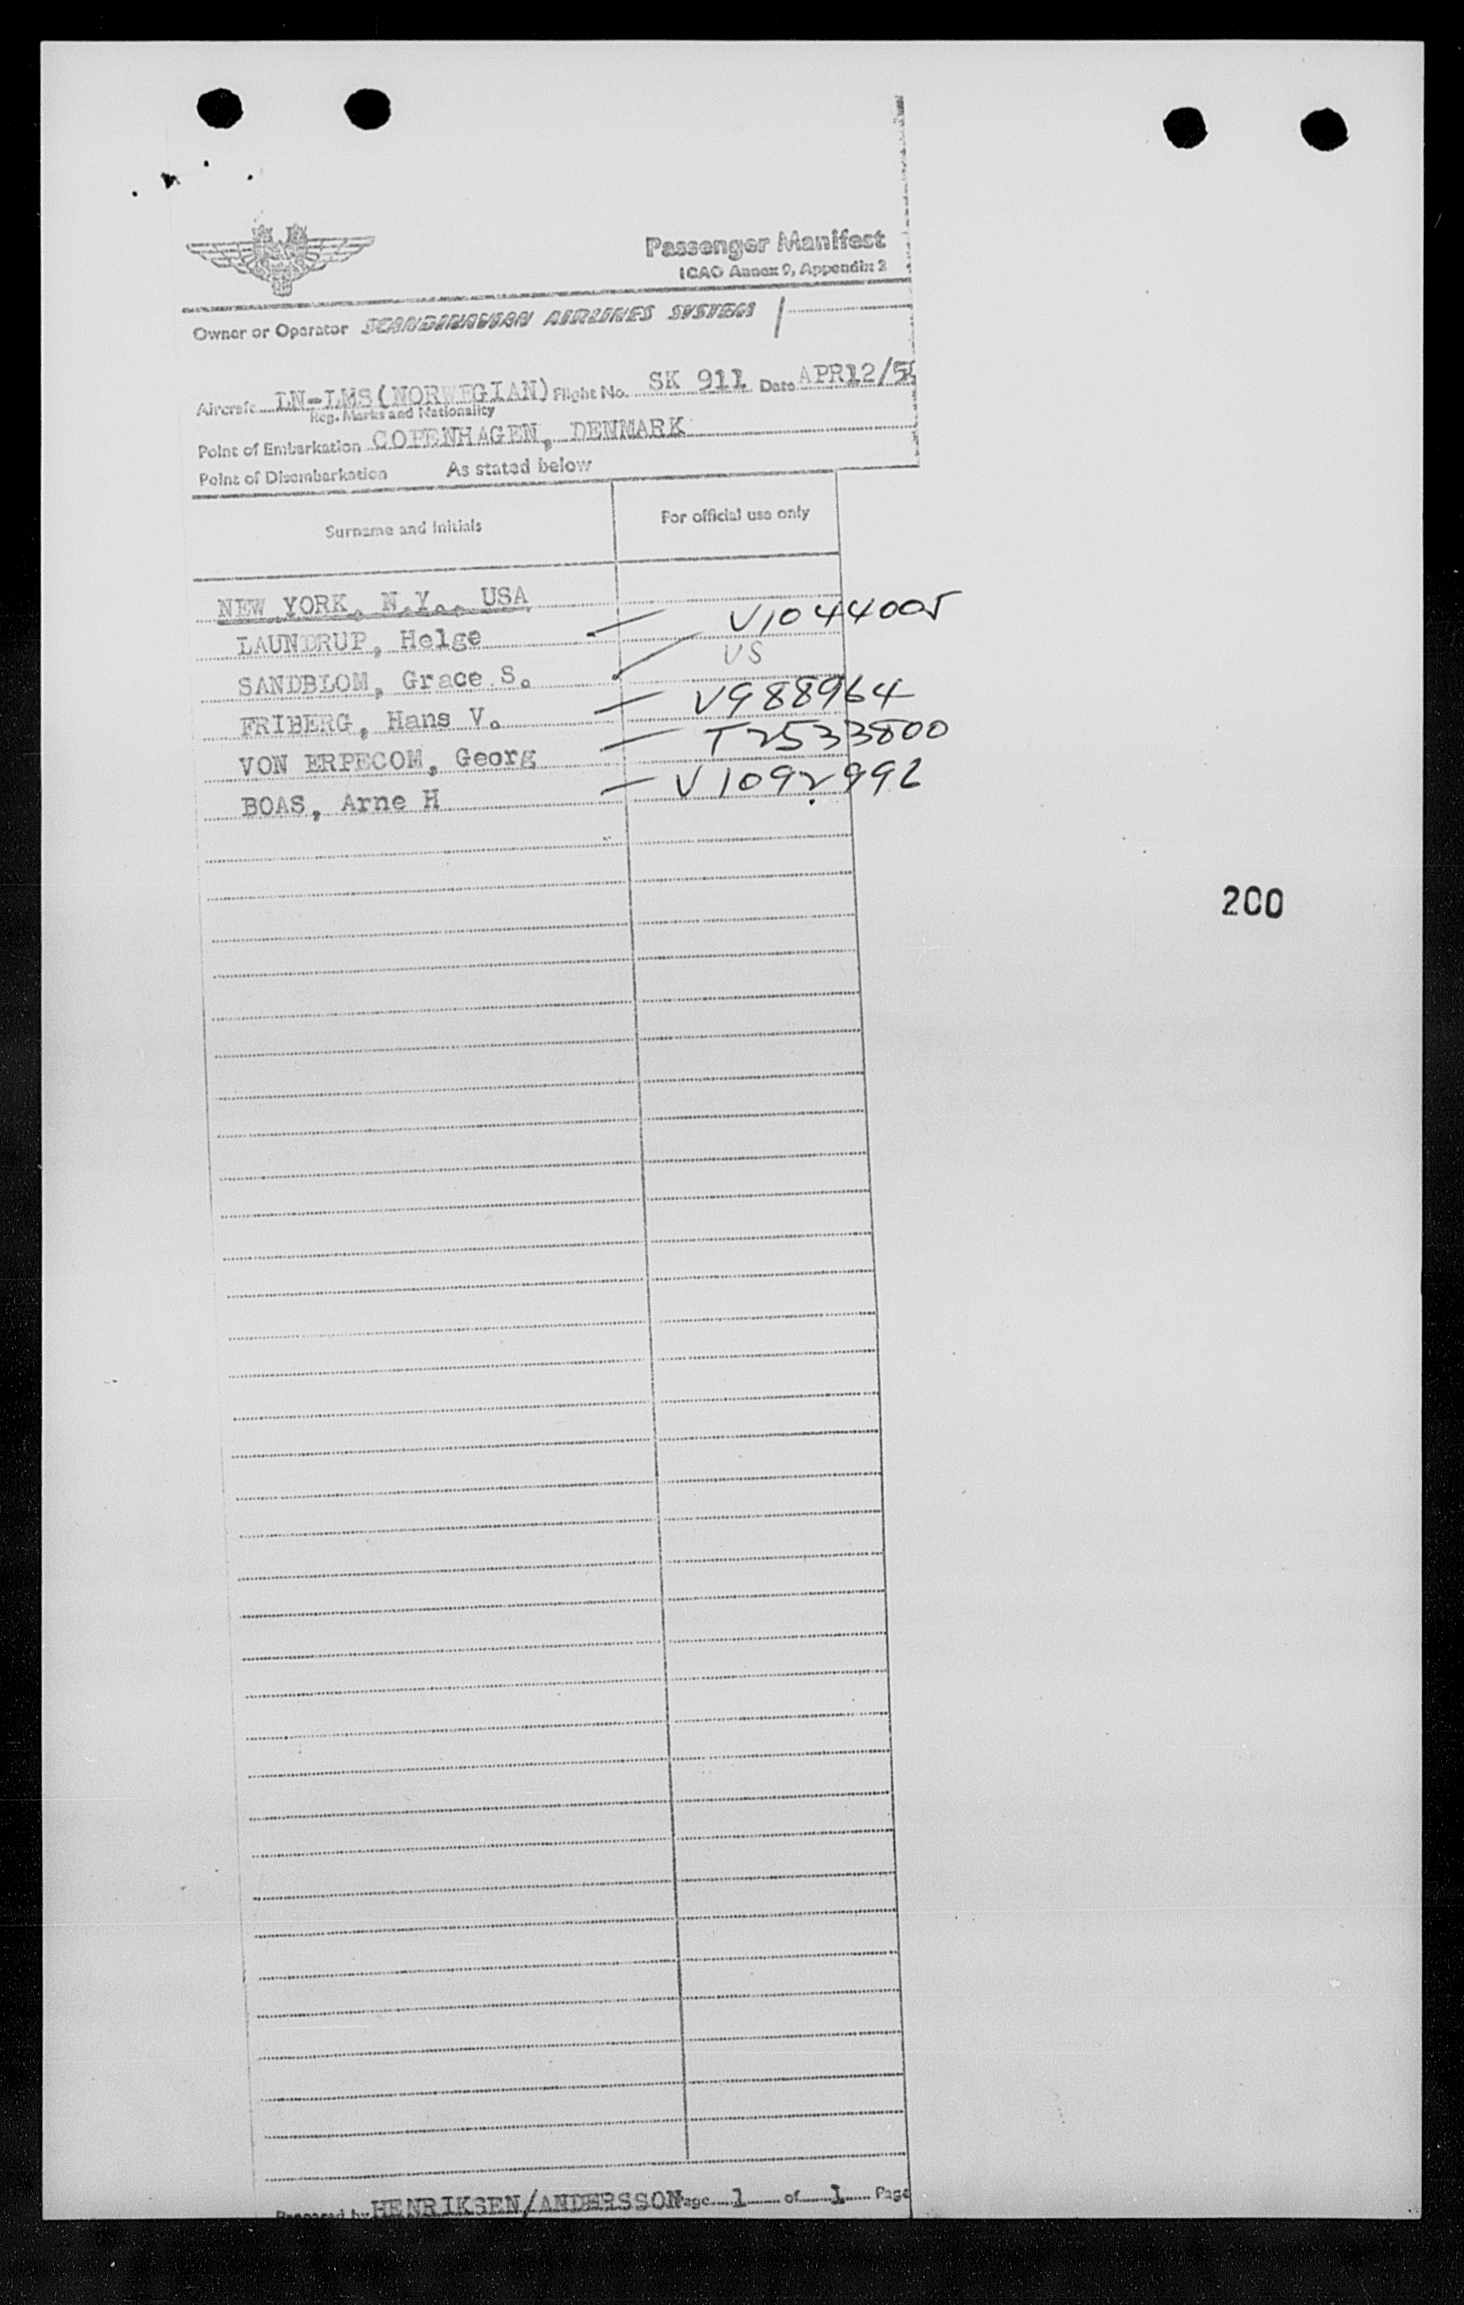 Passenger Manifest
ICAO Annex 9, Appendix 2
Owner or Operator SCANDINAVIAN AIRLINES SYSTEM
Aircraft LN-LMS(NORWEGIAN) Flight No. SK 911 Date APR12/5
Reg. Marks and Nationality
Point of Embarkation COPENHAGEN, DENMARK
Point of Disembarkation As stated below
Surname and Initials For official use only
NEW YORK, N.Y., USA
LAUNDRUP, Helge — V1044005
SANDBLOM, Grace S. US
FRIBERG, Hans V. — V988964
VON ERPECOM, Georg — T2533800
BOAS, Arne H — V1092996
200
Prepared by HENRIKSEN/ANDERSSON Page 1 of 1 Page